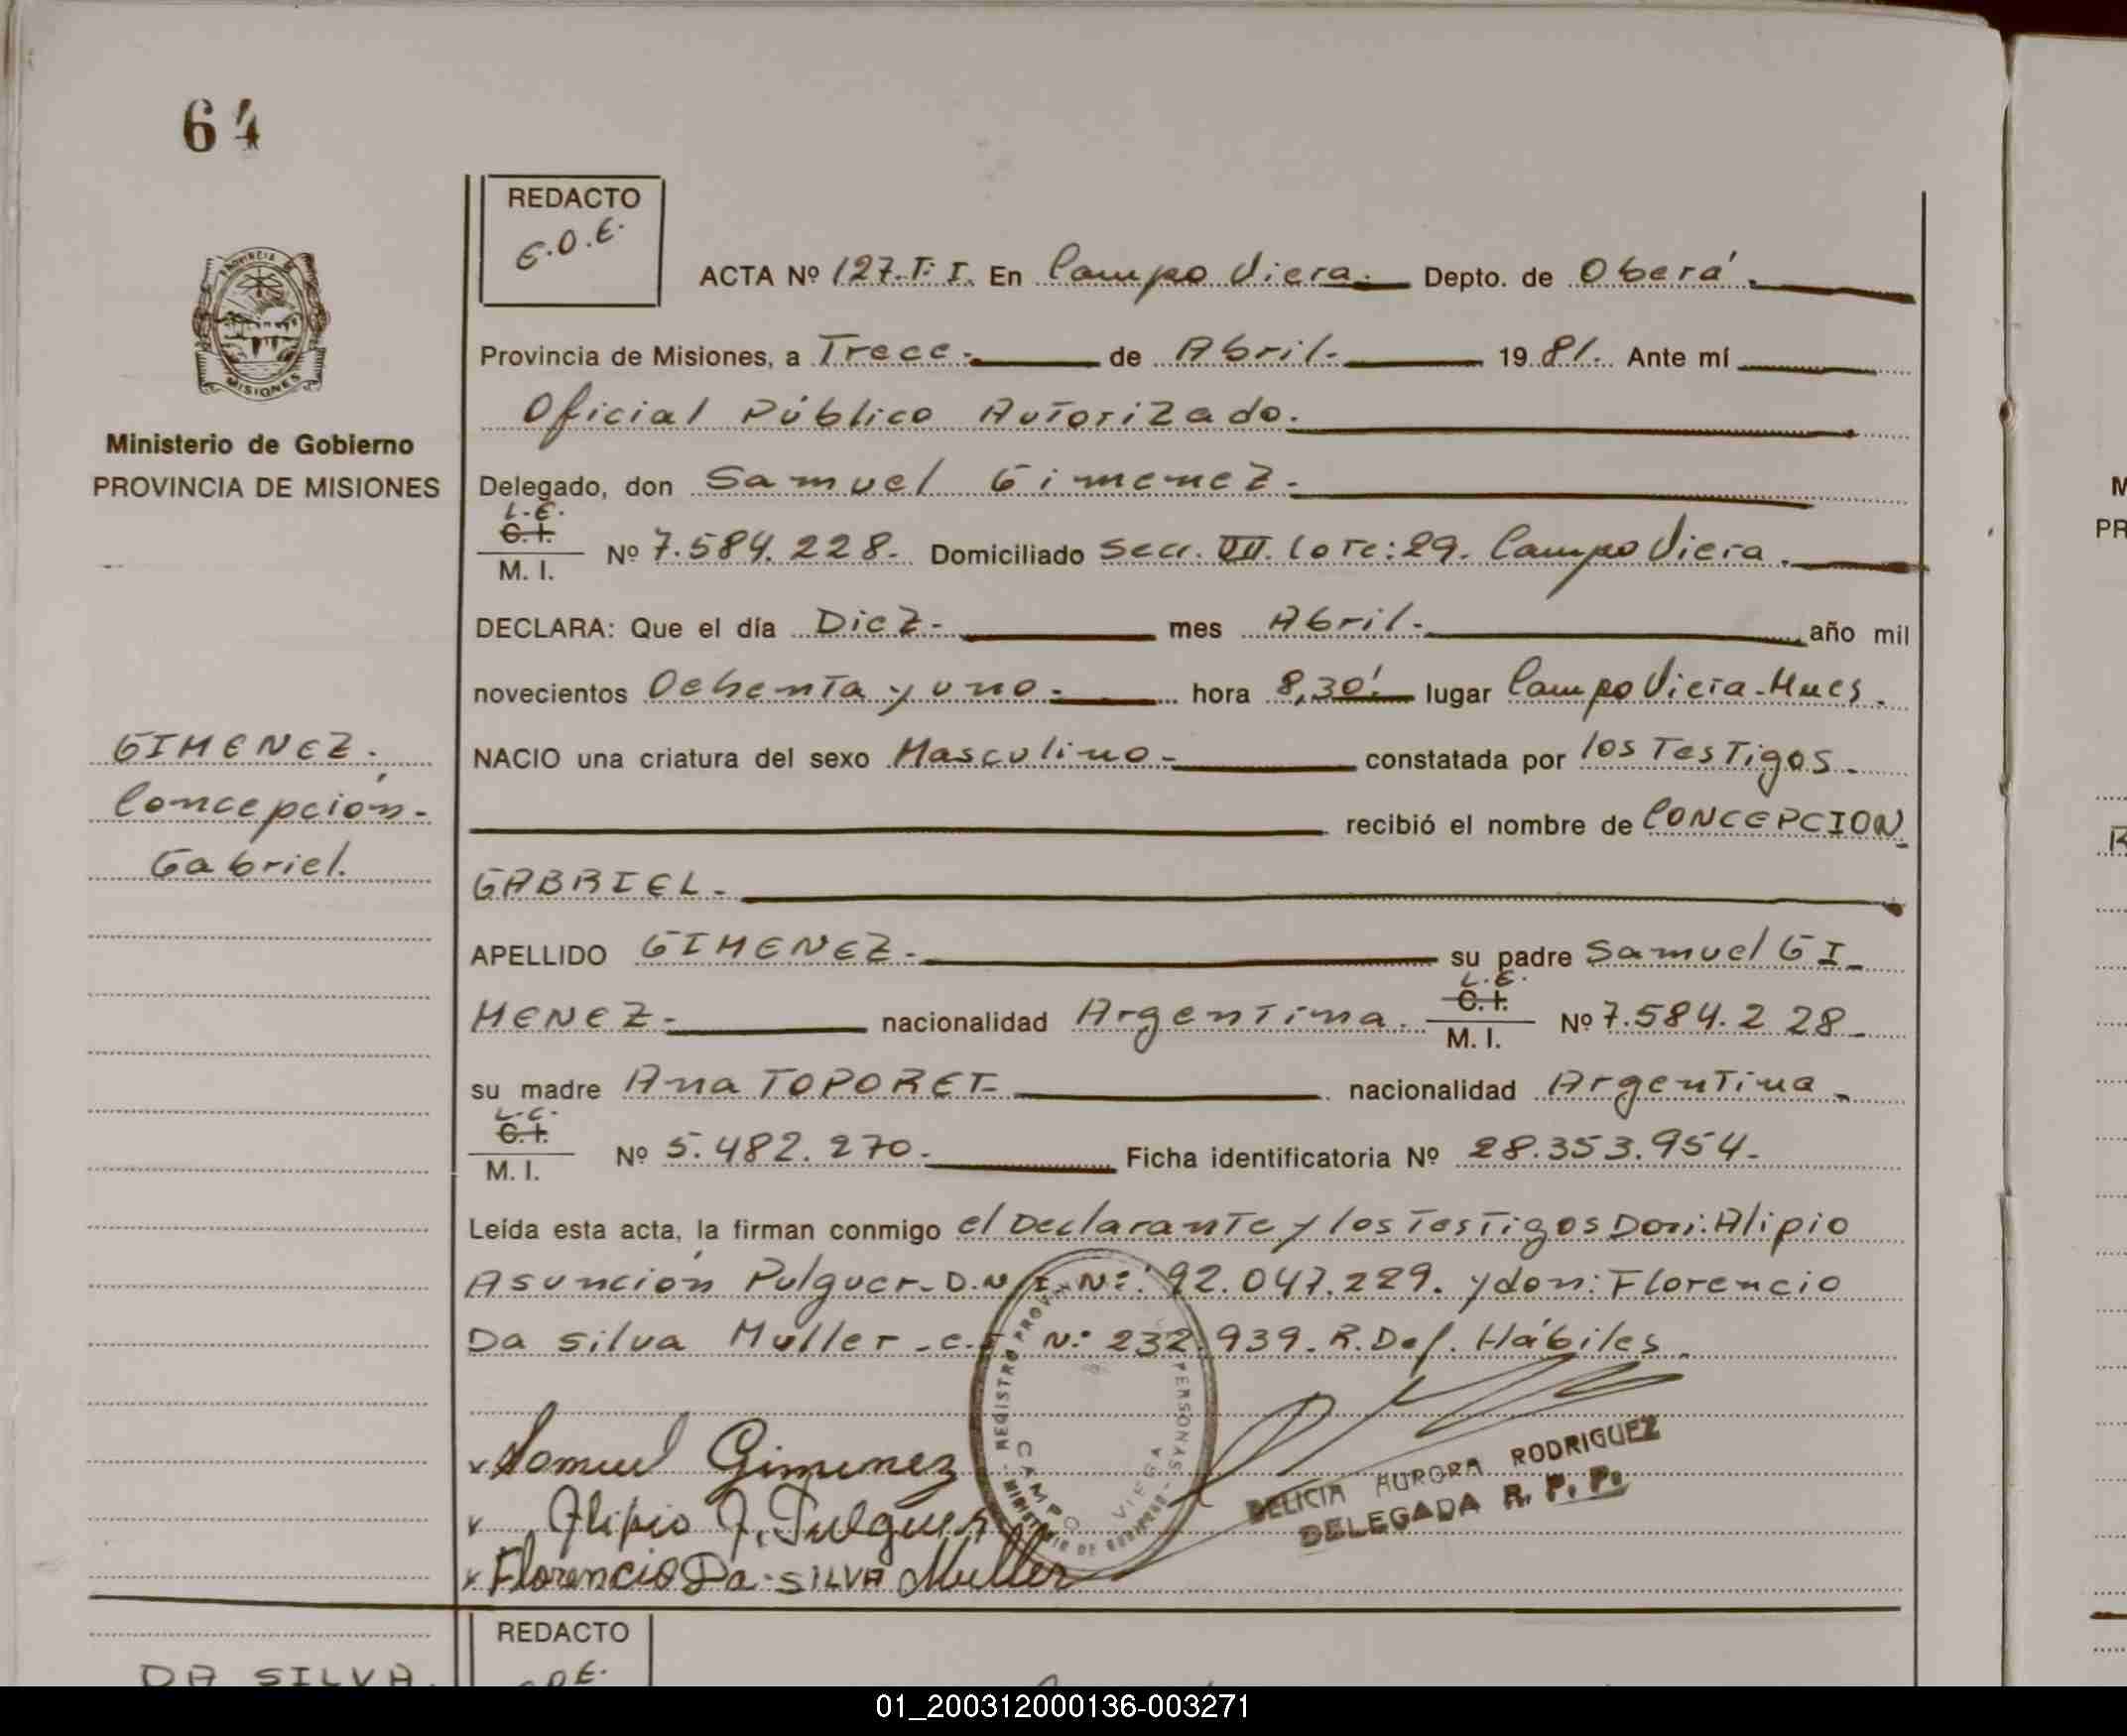 64
REDACTO
E.O.E.
ACTA Nº 127.T.I. En Campo Viera.- Depto. de Oberá.-
Provincia de Misiones, a Trece.- de Abril.- 1981. Ante mí
Oficial Público Autorizado.
PROVINCIA DE
MISIONES
Ministerio de Gobierno
PROVINCIA DE MISIONES
Delegado, don Samuel Gimenez.-
L.E.
C.I.
M. I.
Nº 7.584.228. Domiciliado Secc. VII. Lote: 29. Campo Viera.
DECLARA: Que el día Diez.- mes Abril.- año mil
novecientos Ochenta y uno.- hora 8,30'. lugar Campo Viera-Mnes.
GIMENEZ.
Concepción.-
Gabriel.
NACIO una criatura del sexo Masculino.- constatada por los Testigos.-
recibió el nombre de CONCEPCION
GABRIEL.-
APELLIDO GIMENEZ.- su padre Samuel GI-
L.E.
C.I.
M. I.
MENEZ.- nacionalidad Argentina. Nº 7.584.228.-
su madre Ana TOPORET- nacionalidad Argentina.-
L.C.
C.I.
M. I.
Nº 5.482.270.- Ficha identificatoria Nº 28.353.954.-
Leída esta acta, la firman conmigo el Declarante y los Testigos Don: Alipio
Asunción Pulguer- D.N.I. Nº: 92.047.229. y don: Florencio
Da Silva Muller -C.I. Nº 232.939. R.Def. Hábiles.
REGISTRO PROV. PERSONAS
CAMPO VIERA
MINISTERIO DE GOBIERNO
Samuel Gimenez
Alipio A. Pulguer
Florencio Da-SILVA Muller
DELICIA AURORA RODRIGUEZ
DELEGADA R. P. P.
REDACTO
DA SILVA.
01_200312000136-003271